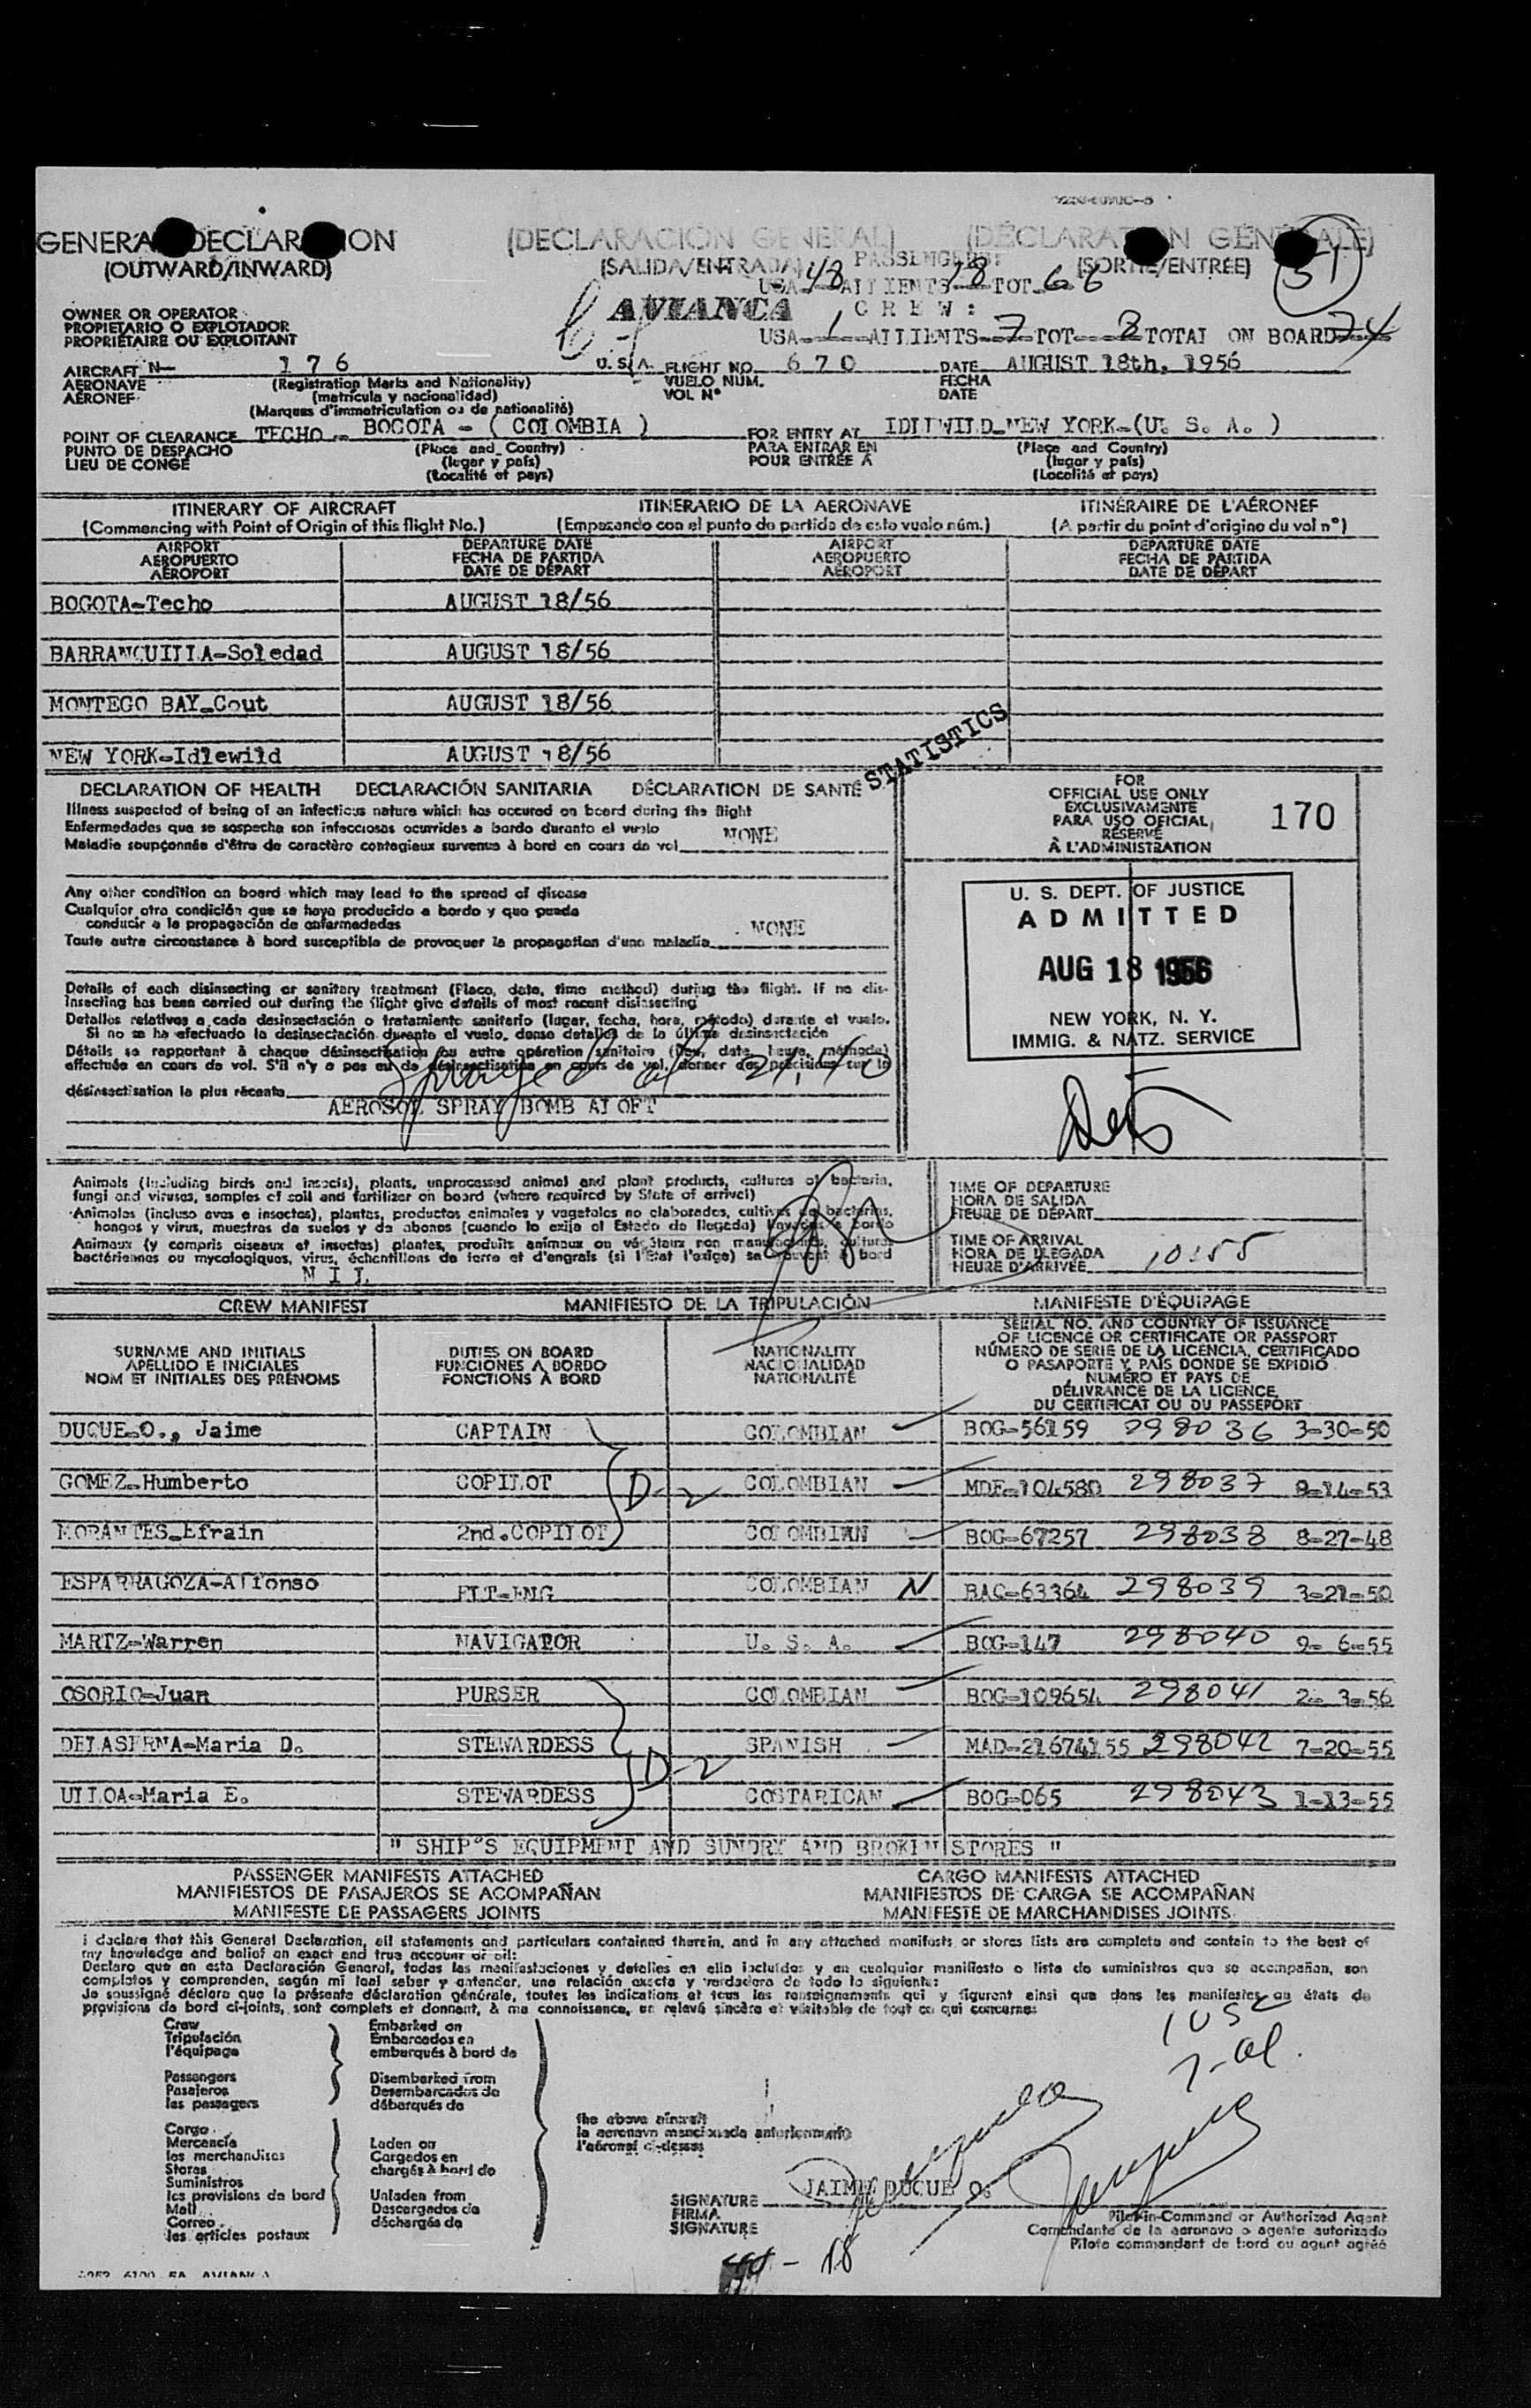 GENERAL DECLARATION (DECLARACIÓN GENERAL) (DÉCLARATION GÉNÉRALE)
(OUTWARD/INWARD) (SALIDA/ENTRADA) (SORTIE/ENTRÉE)
51
PASSENGERS:
USA 48 ALLIENTS 18 TOT 66
AVIANCA
CREW:
USA 1 ALLIENTS 7 TOT 8 TOTAL ON BOARD 74
OWNER OR OPERATOR
PROPIETARIO O EXPLOTADOR
PROPRIÉTAIRE OU EXPLOITANT
AIRCRAFT N- 176 U.S.A. FLIGHT NO. 670 DATE AUGUST 18th, 1956
AERONAVE (Registration Marks and Nationality) VUELO NUM. FECHA
AÉRONEF (matrícula y nacionalidad) VOL Nº DATE
(Marques d'immatriculation ou de nationalité)
POINT OF CLEARANCE TECHO - BOGOTA - ( COLOMBIA ) FOR ENTRY AT IDLEWILD-NEW YORK-(U. S. A. )
PUNTO DE DESPACHO (Place and Country) PARA ENTRAR EN (Place and Country)
LIEU DE CONGÉ (lugar y país) POUR ENTRÉE À (lugar y país)
(Localité et pays) (Localité et pays)
ITINERARY OF AIRCRAFT ITINERARIO DE LA AERONAVE ITINÉRAIRE DE L'AÉRONEF
(Commencing with Point of Origin of this flight No.) (Empezando con el punto de partida de este vuelo núm.) (A partir du point d'origine du vol nº)
AIRPORT DEPARTURE DATE AIRPORT DEPARTURE DATE
AEROPUERTO FECHA DE PARTIDA AEROPUERTO FECHA DE PARTIDA
AÉROPORT DATE DE DÉPART AÉROPORT DATE DE DÉPART
BOGOTA-Techo AUGUST 18/56
BARRANQUILLA-Soledad AUGUST 18/56
MONTEGO BAY-Cout AUGUST 18/56
NEW YORK-Idlewild AUGUST 18/56
STATISTICS
DECLARATION OF HEALTH DECLARACIÓN SANITARIA DÉCLARATION DE SANTÉ
Illness suspected of being of an infectious nature which has occured on board during the flight
Enfermedades que se sospecha son infecciosas ocurridas a bordo durante el vuelo
Maladie soupçonnée d'être de caractère contagieux survenue à bord en cours de vol NONE
Any other condition on board which may lead to the spread of disease
Cualquier otra condición que se haya producido a bordo y que pueda
conducir a la propagación de enfermedades
Toute autre circonstance à bord susceptible de provoquer la propagation d'une maladie NONE
Details of each disinsecting or sanitary treatment (Place, date, time method) during the flight. If no dis-
insecting has been carried out during the flight give details of most recent disinsecting
Detalles relativos a cada desinsectación o tratamiento sanitario (lugar, fecha, hora, método) durante el vuelo.
Si no se ha efectuado la desinsectación durante el vuelo, dense detalles de la última desinsectación
Détails se rapportant à chaque désinsectisation ou autre opération sanitaire (lieu, date, heure, méthode)
effectuée en cours de vol. S'il n'y a pas eu de désinsectisation en cours de vol, donner des précisions sur la
désinsectisation la plus récente
AEROSOL SPRAY BOMB ALOFT
FOR
OFFICIAL USE ONLY
EXCLUSIVAMENTE
PARA USO OFICIAL
RÉSERVÉ
À L'ADMINISTRATION
170
U. S. DEPT. OF JUSTICE
ADMITTED
AUG 18 1956
NEW YORK, N. Y.
IMMIG. & NATZ. SERVICE
Animals (including birds and insects), plants, unprocessed animal and plant products, cultures of bacteria,
fungi and viruses, samples of soil and fertilizer on board (where required by State of arrival)
Animales (incluso aves e insectos), plantas, productos animales y vegetales no elaborados, cultivos de bacterias,
hongos y virus, muestras de suelos y de abonos (cuando lo exija el Estado de llegada) llevados a bordo
Animaux (y compris oiseaux et insectes) plantes, produits animaux ou végétaux non manufacturés, cultures
bactériennes ou mycologiques, virus, échantillons de terre et d'engrais (si l'État l'exige) se trouvant à bord
NIL
TIME OF DEPARTURE
HORA DE SALIDA
HEURE DE DÉPART
TIME OF ARRIVAL
HORA DE LLEGADA
HEURE D'ARRIVÉE 10:55
CREW MANIFEST MANIFIESTO DE LA TRIPULACIÓN MANIFESTE D'ÉQUIPAGE
SURNAME AND INITIALS
APELLIDO E INICIALES
NOM ET INITIALES DES PRÉNOMS
DUTIES ON BOARD
FUNCIONES A BORDO
FONCTIONS À BORD
NATIONALITY
NACIONALIDAD
NATIONALITÉ
SERIAL NO. AND COUNTRY OF ISSUANCE
OF LICENCE OR CERTIFICATE OR PASSPORT
NÚMERO DE SERIE DE LA LICENCIA, CERTIFICADO
O PASAPORTE Y PAÍS DONDE SE EXPIDIÓ
NUMÉRO ET PAYS DE
DÉLIVRANCE DE LA LICENCE
DU CERTIFICAT OU DU PASSEPORT
DUQUE-O., Jaime CAPTAIN COLOMBIAN BOG-56159 298036 3-30-50
GOMEZ-Humberto COPILOT D-2 COLOMBIAN MDE-104580 298037 9-14-53
MORANTES-Efrain 2nd.COPILOT COLOMBIAN BOG-67257 298038 8-27-48
ESPARRAGOZA-Alfonso FLT-ENG COLOMBIAN N BAC-63364 298039 3-21-50
MARTZ-Warren NAVIGATOR U. S. A. BOG-147 298040 9- 6-55
OSORIO-Juan PURSER COLOMBIAN BOG-109654 298041 2- 3-56
DELASERNA-Maria D. STEWARDESS SPANISH MAD-21674155 298042 7-20-55
D-2
ULLOA-Maria E. STEWARDESS COSTARICAN BOG-065 298043 1-13-55
" SHIP"S EQUIPMENT AND SUNDRY AND BROKEN STORES "
PASSENGER MANIFESTS ATTACHED CARGO MANIFESTS ATTACHED
MANIFIESTOS DE PASAJEROS SE ACOMPAÑAN MANIFIESTOS DE CARGA SE ACOMPAÑAN
MANIFESTE DE PASSAGERS JOINTS MANIFESTE DE MARCHANDISES JOINTS
I declare that this General Declaration, all statements and particulars contained therein, and in any attached manifests or stores lists are complete and contain to the best of
my knowledge and belief an exact and true account of all:
Declaro que en esta Declaración General, todas las manifestaciones y detalles en ella incluídos y en cualquier manifiesto o lista de suministros que se acompañan, son
completos y comprenden, según mi leal saber y entender, una relación exacta y verdadera de todo lo siguiente:
Je soussigné déclare que la présente déclaration générale, toutes les indications et tous les renseignements qui y figurent ainsi que dans les manifestes ou états de
provisions de bord ci-joints, sont complets et donnent, à ma connaissance, un relevé sincère et véritable de tout ce qui concerne:
1 USC
7-al.
Crew
Tripulación
l'équipage
Passengers
Pasajeros
les passagers
Cargo
Mercancía
les marchandises
Stores
Suministros
les provisions de bord
Mail
Correo
les articles postaux
Embarked on
Embarcados en
embarqués à bord de
Disembarked from
Desembarcados de
débarqués de
Laden on
Cargados en
chargés à bord de
Unladen from
Descargados de
déchargés de
the above aircraft
la aeronave mencionada anteriormente
l'aéronef ci-dessus
JAIME DUQUE O.
SIGNATURE
FIRMA
SIGNATURE
Pilot-in-Command or Authorized Agent
Comandante de la aeronave o agente autorizado
Pilote commandant de bord ou agent agréé